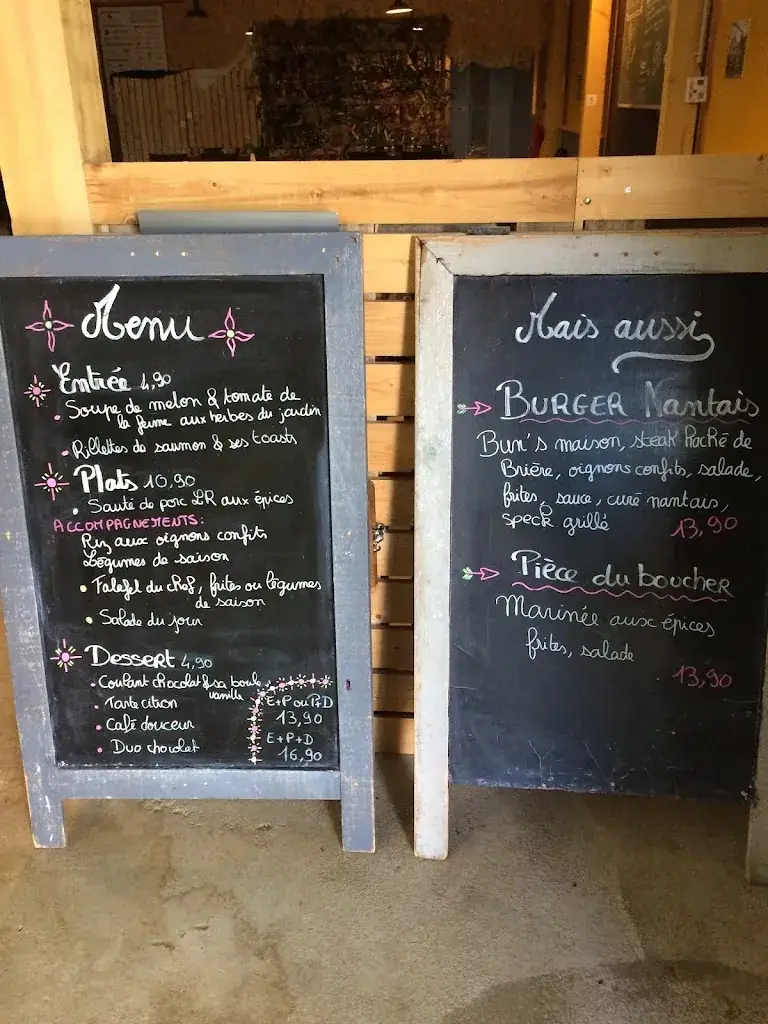 Menu
Entrée 4,90
• Soupe de melon & tomate de
la ferme aux herbes du jardin
• Rillettes de saumon & ses toasts
Plats 10,90
• Sauté de porc LR aux épices
ACCOMPAGNEMENTS:
Riz aux oignons confits
Légumes de saison
• Falafel du chef, frites ou légumes
de saison
• Salade du jour
Dessert 4,90
• Coulant chocolat & sa boule
vanille
• Tarte citron
• Café douceur
• Duo chocolat
E+P ou P+D
13,90
E+P+D
16,90
Mais aussi
BURGER Nantais
Bun's maison, steak haché de
Brière, oignons confits, salade,
frites, sauce, curé nantais,
speck grillé
13,90
Pièce du boucher
Marinée aux épices
frites, salade
13,90